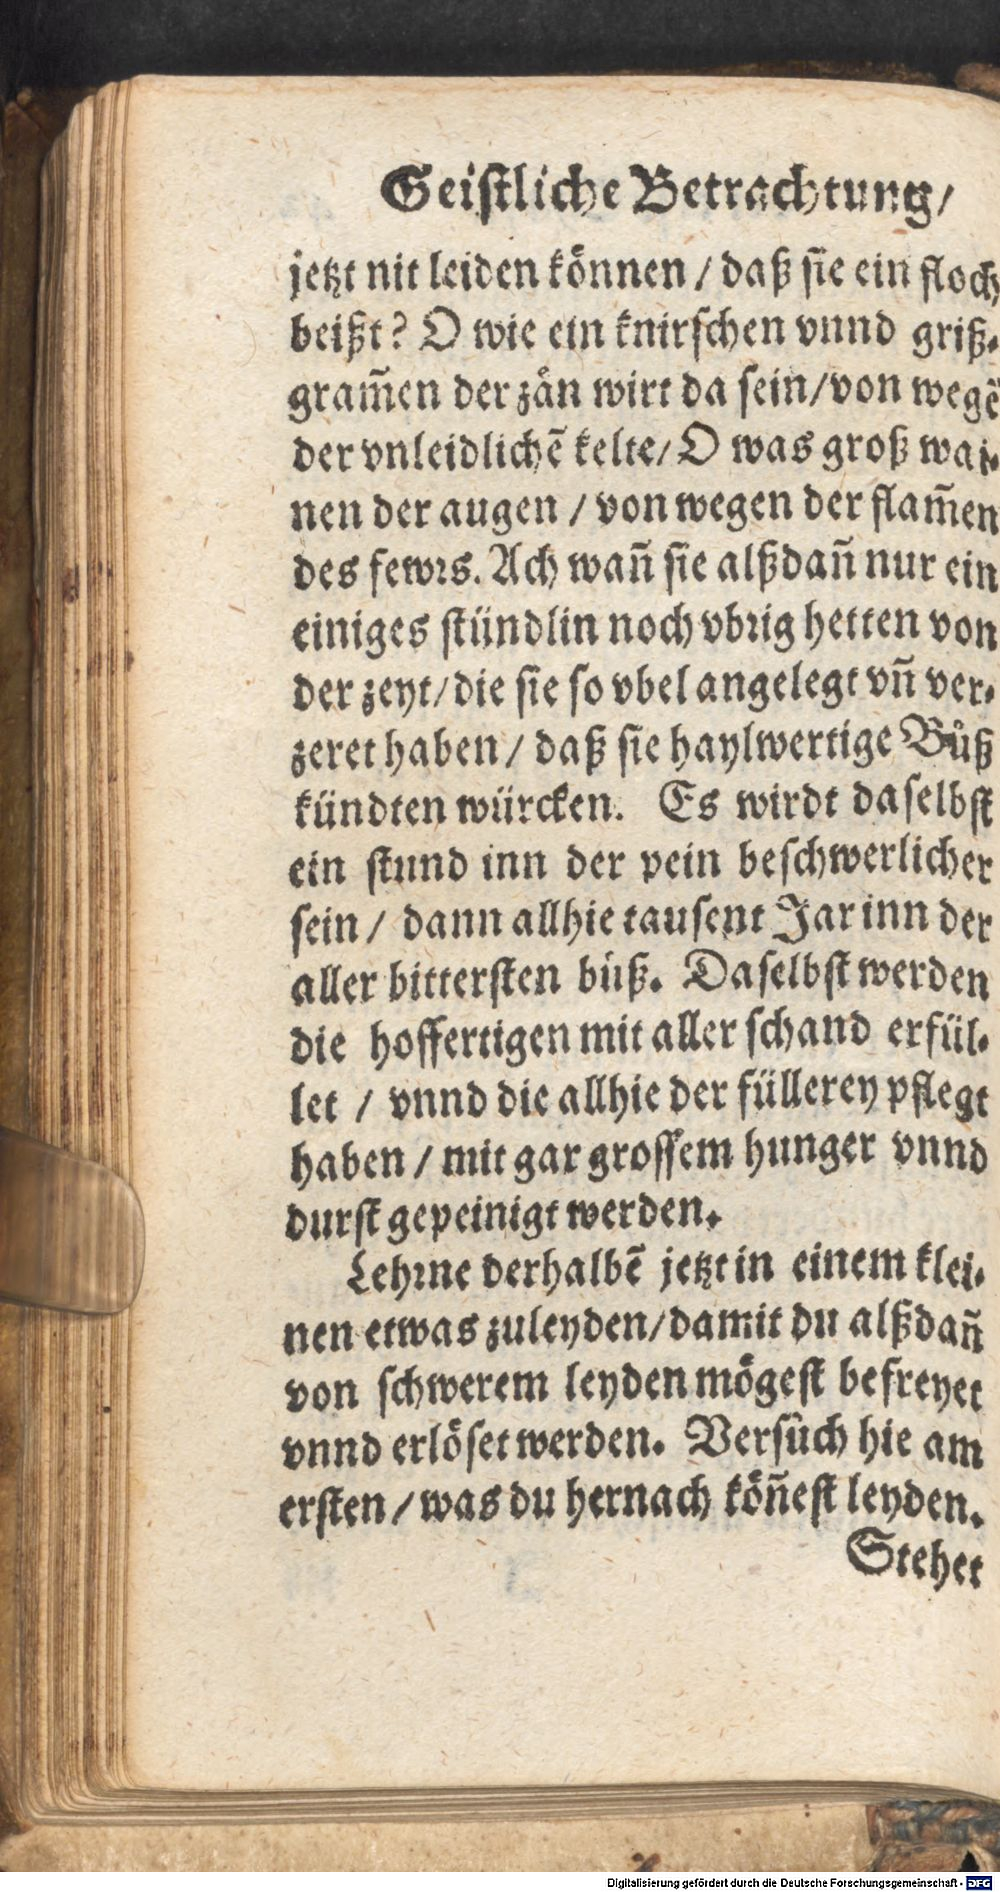 Geistliche Betrachtung/
jetzt nit leiden können / daß sie ein floch
beißt? O wie ein knirschen vnnd griß-
gram̃en der zän wirt da sein/von wegẽ
der vnleidlichẽ kelte/ O was groß wai-
nen der augen / von wegen der flam̃en
des fewrs. Ach wañ sie alßdañ nur ein
einiges stündlin noch vbrig hetten von
der zeyt/die sie so vbel angelegt vñ ver-
zeret haben / daß sie haylwertige Bůß
kündten würcken. Es wirdt daselbst
ein stund inn der pein beschwerlicher
sein / dann allhie tausent Jar inn der
aller bittersten bůß. Daselbst werden
die hoffertigen mit aller schand erfül-
let / vnnd die allhie der füllerey pflegt
haben / mit gar grossem hunger vnnd
durst gepeinigt werden.
Lehrne derhalbẽ jetzt in einem klei-
nen etwas zuleyden/damit du alßdañ
von schwerem leyden mögest befreyet
vnnd erlöset werden. Versůch hie am
ersten / was du hernach köñest leyden.
Stehet
Digitalisierung gefördert durch die Deutsche Forschungsgemeinschaft - DFG